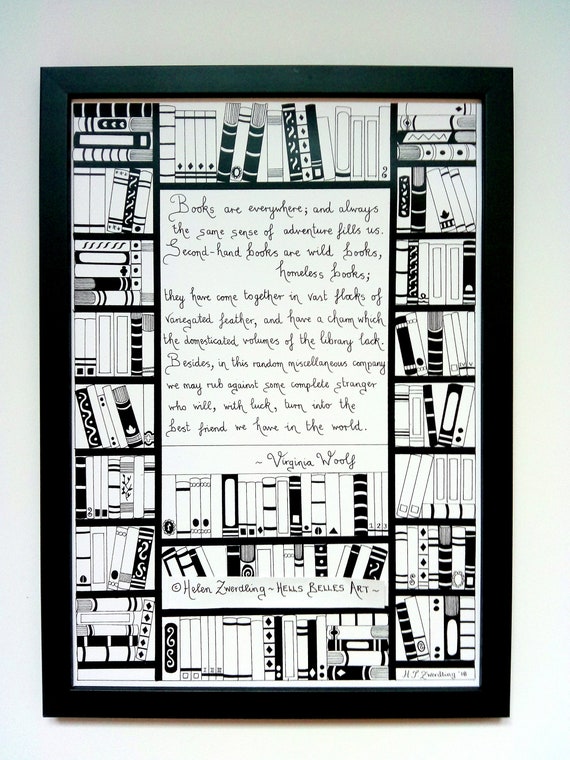 Books are everywhere; and always
the same sense of adventure fills us.
Second-hand books are wild books,
homeless books;
they have come together in vast flocks of
variegated feather, and have a charm which
the domesticated volumes of the library lack.
Besides, in this random miscellaneous company
we may rub against some complete stranger
who will, with luck, turn into the
best friend we have in the world.
~ Virginia Woolf
1 2 3
© Helen Zwerdling ~ Hells Belles Art ~
H.L. Zwerdling '18